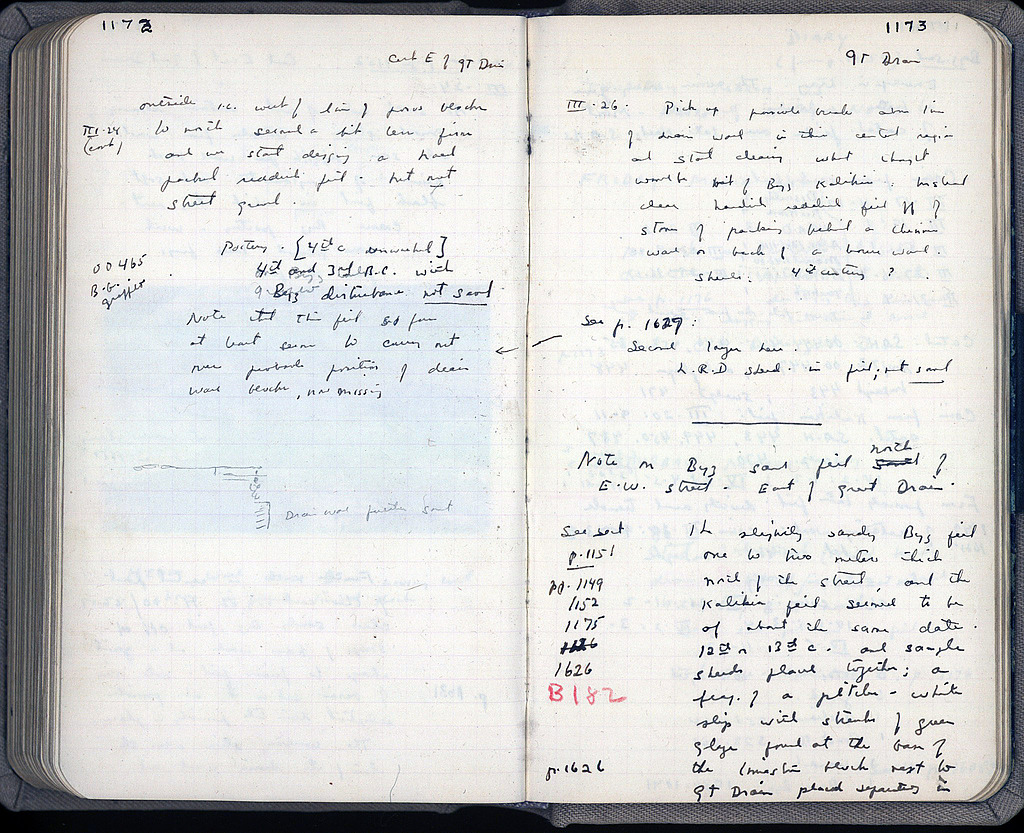 1172
Cut E of Gt Drain
outside i.e. west of line of poros blocks
III-24 to north second a bit less firm
(cont) and we start digging a hard
packed reddish fill. but not
street gravel.
Pottery. [4th c
00465 4th and 3rd B.C. with
B.G. Byz disturbance not sand
graffito
Note that this fill so far
at least seems to carry out
over probable position of drain
wall blocks, now missing
Drain wall further south
1173
Gt Drain
III-26. Pick up possible break line
of drain wall in this central region
and start clearing what
would be bit of Byz Kalikia. Instead
clear hardish reddish fill of
stones of packing behind a
wall or back of a house wall
sherds. 4th century?
See p. 1629:
Second layer here
L.R.D sherd in fill, not sand
Note on Byz sand fill north of
E.W. street. East of Great Drain.
See sect The slightly sandy Byz fill
p. 1151 one to two meters thick
pp. 1149 north of the street, and the
1152 Kalikia fill seemed to be
1175 of about the same date.
12th or 13th c. and sample
1626 sherds placed together; a
B182 frag. of a pitcher - white
slip with streaks of green
glaze found at the base of
p. 1626 the limestone block next to
Gt Drain placed separately in